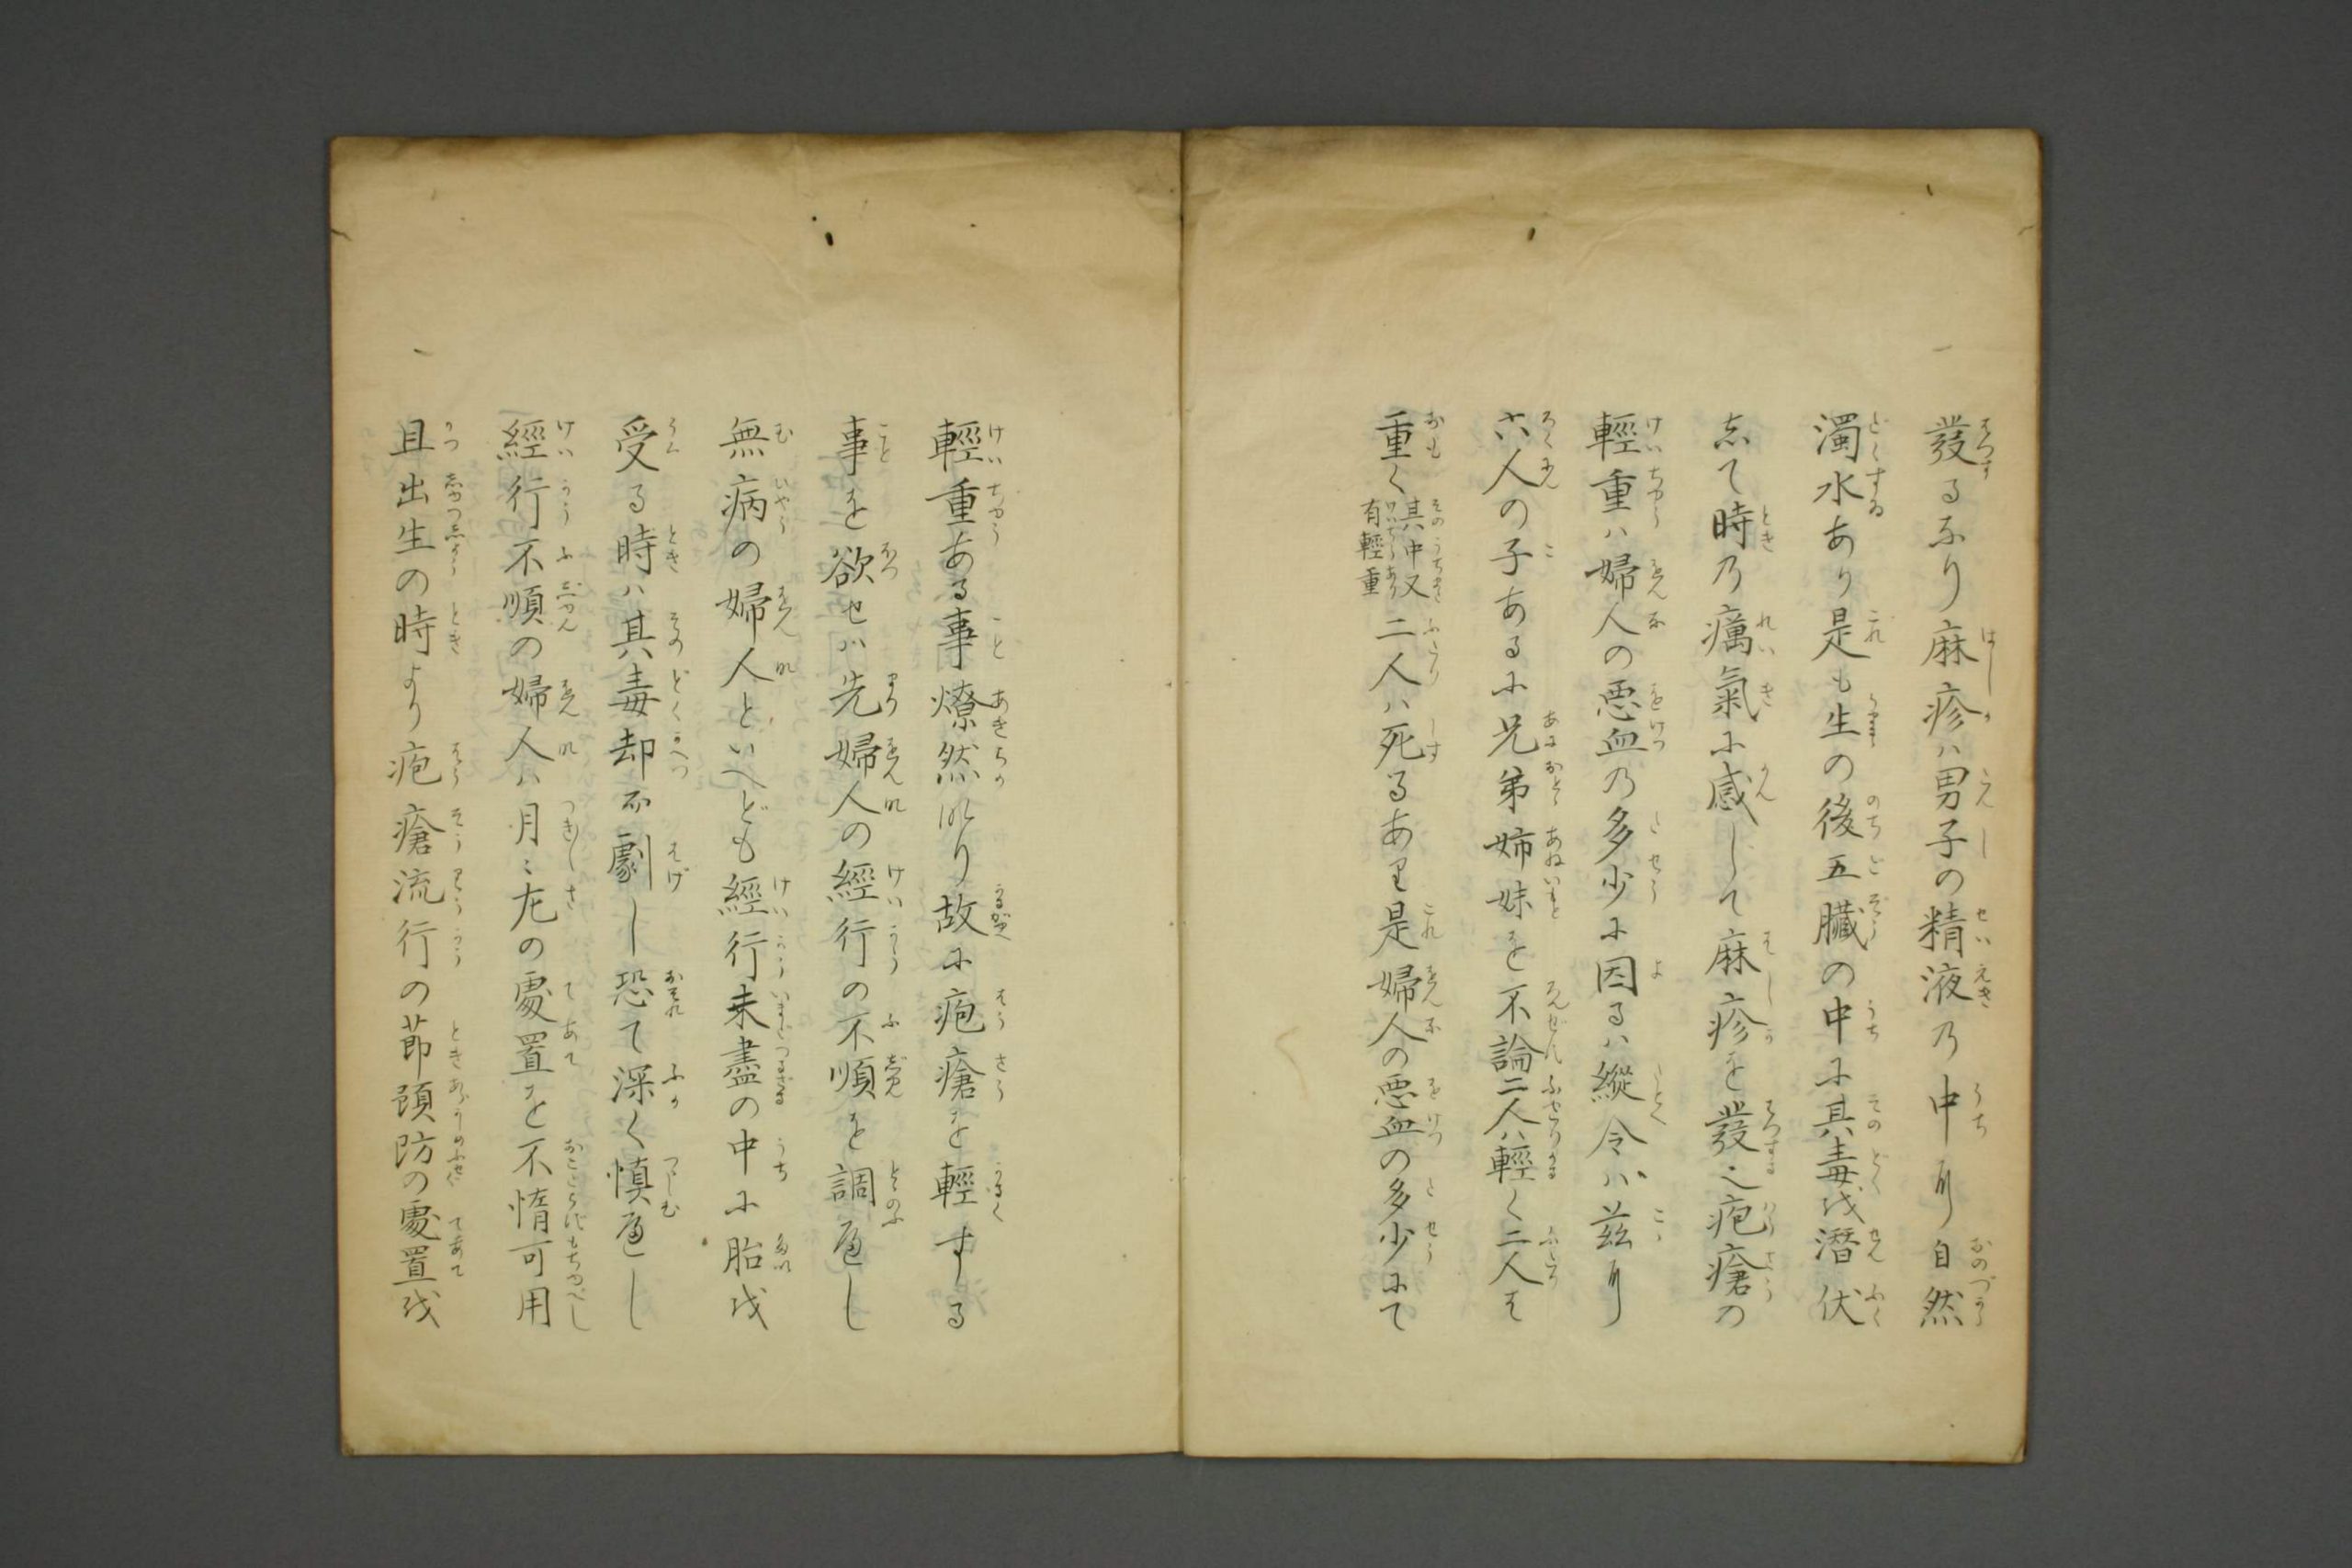 發るなり麻疹ハ男子の精液乃中に自然
濁水あり是も生の後五臓の中に其毒を潜伏
して時乃癘氣に感して麻疹を發之疱瘡の
輕重ハ婦人の悪血乃多少に因るハ縦令ハ茲に
六人の子あるに兄弟姉妹を不論二人ハ輕く二人は
重く其中又有輕重二人ハ死るあり是婦人の悪血の多少にて
輕重ある事燎然なり故に疱瘡を輕する
事を欲せハ先婦人の經行の不順を調べし
無病の婦人といへども經行未盡の中に胎を
受る時ハ其毒却而劇し恐て深く慎べし
經行不順の婦人ハ月〻左の處置を不惰可用
且出生の時より疱瘡流行の節預防の處置を